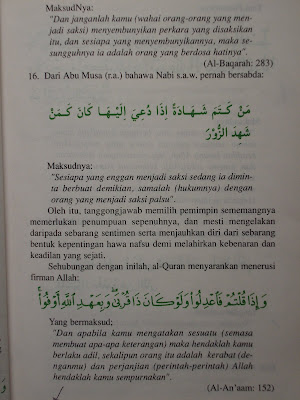 MaksudNya:
"Dan janganlah kamu (wahai orang-orang yang men-
jadi saksi) menyembunyikan perkara yang disaksikan
itu, dan sesiapa yang menyembunyikannya, maka se-
sungguhnya ia adalah orang yang berdosa hatinya".
(Al-Baqarah: 283)
16. Dari Abu Musa (r.a.) bahawa Nabi s.a.w. pernah bersabda:
مَنْ كَتَمَ شَهَادَةً إِذَا دُعِيَ إِلَيْهَا كَانَ كَمَنْ
شَهِدَ الزُّوْرَ
Maksudnya:
"Sesiapa yang enggan menjadi saksi sedang ia dimin-
ta berbuat demikian, samalah (hukumnya) dengan
orang yang menjadi saksi palsu".
Oleh itu, tanggongjawab memilih pemimpin sememangnya
memerlukan penumpuan sepenuhnya, dan mesti mengelakan
daripada sebarang sentimen serta menjauhkan diri dari sebarang
bentuk kepentingan hawa nafsu demi melahirkan kebenaran dan
keadilan yang sejati.
Sehubungan dengan inilah, al-Quran menyarankan menerusi
firman Allah:
وَإِذَا قُلْتُمْ فَاعْدِلُوا وَلَوْ كَانَ ذَا قُرْبَىٰ وَبِعَهْدِ اللَّهِ أَوْفُوا
Yang bermaksud;
"Dan apabila kamu mengatakan sesuatu (semasa
membuat apa-apa keterangan) maka hendaklah kamu
berlaku adil, sekalipun orang itu adalah kerabat (de-
nganmu) dan perjanjian (perintah-perintah) Allah
hendaklah kamu sempurnakan".
(Al-An'aam: 152)